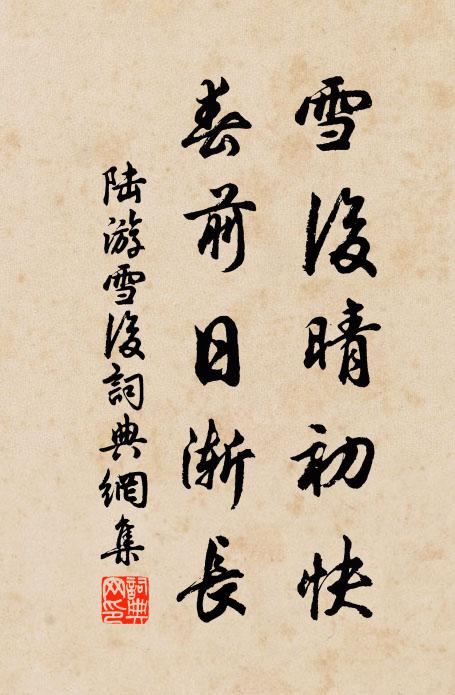 雪後晴初快
春前日漸長
陸游雪後詞典網集
詞典
網印